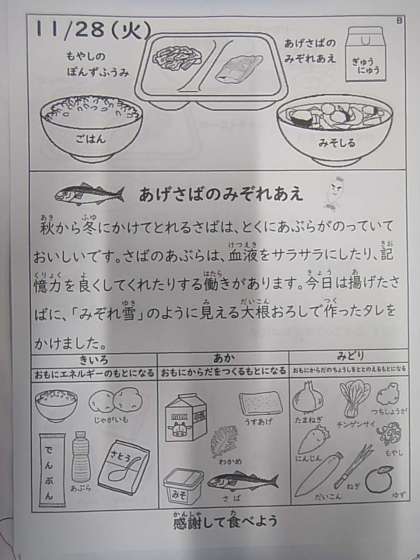 11/28(火)
B
もやしの
ぽんずふうみ
あげさばの
みぞれあえ
ぎゅう
にゅう
ごはん
みそしる
あげさばのみぞれあえ
秋から冬にかけてとれるさばは、とくにあぶらがのっていて
おいしいです。さばのあぶらは、血液をサラサラにしたり、記
憶力を良くしてくれたりする働きがあります。今日は揚げたさ
ばに、「みぞれ雪」のように見える大根おろしで作ったタレを
かけました。
きいろ
おもにエネルギーのもとになる
じゃがいも
でんぷん
あぶら
さとう
あか
おもにからだをつくるもとになる
うすあげ
わかめ
みそ
さば
みどり
おもにからだのちょうしをととのえるもとになる
たまねぎ
チンゲンサイ
つちしょうが
にんじん
もやし
だいこん
ねぎ
ゆず
感謝して食べよう